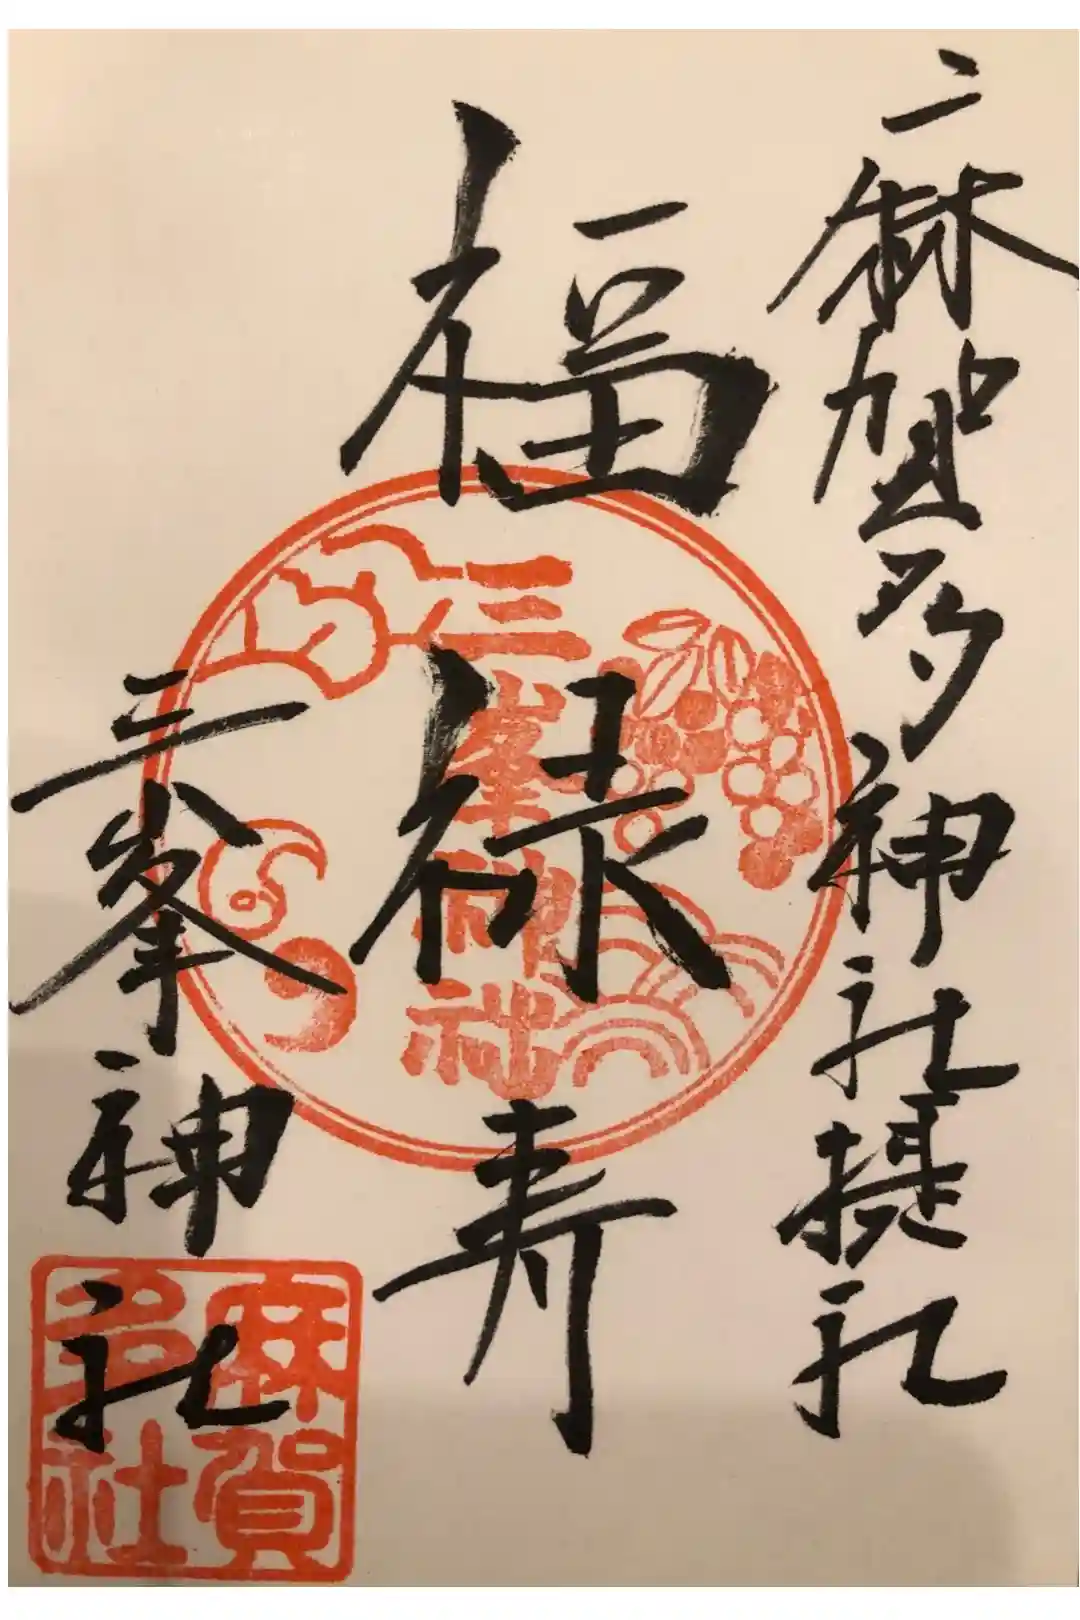 二麻賀多神社摂社
福禄寿
三峯神社
三峯神社
麻賀
多社